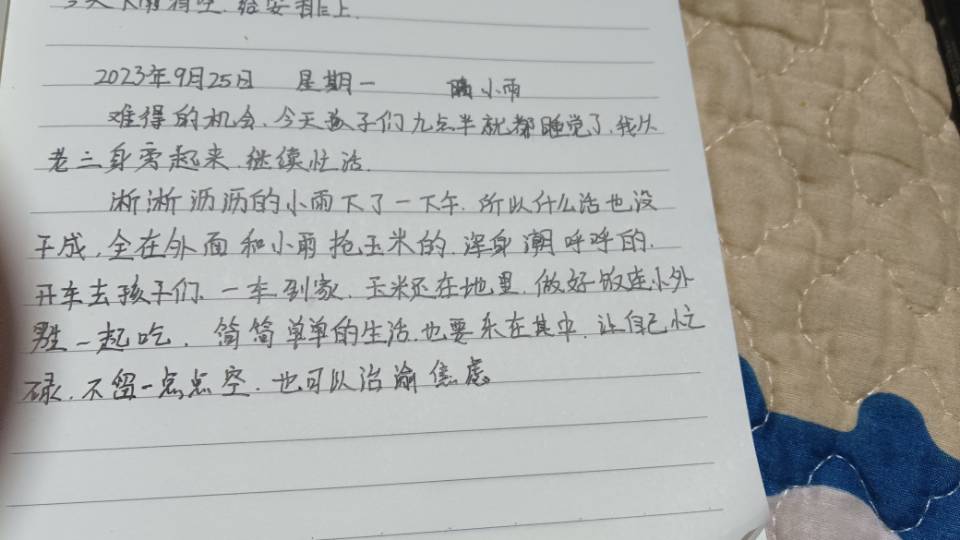 今天下雨有空.给安排上.
2023年9月25日 星期一 小雨
难得的机会.今天孩子们九点半就都睡觉了.我从
老三身旁起来.继续忙活.
淅淅沥沥的小雨下了一下午.所以什么活也没
干成.全在外面和小雨抢玉米的.浑身潮呼呼的.
开车去孩子们.一车到家.玉米还在地里.做好饭连小外
甥一起吃.简简单单的生活.也要乐在其中.让自己忙
碌.不留一点点空.也可以治愈焦虑